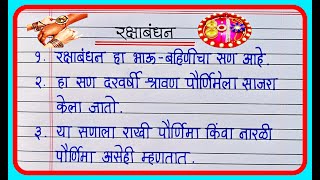 रक्षाबंधन
१. रक्षाबंधन हा भाऊ-बहिणीचा सण आहे.
२. हा सण दरवर्षी श्रावण पौर्णिमेला साजरा
केला जातो.
३. या सणाला राखी पौर्णिमा किंवा नारळी
पौर्णिमा असेही म्हणतात.